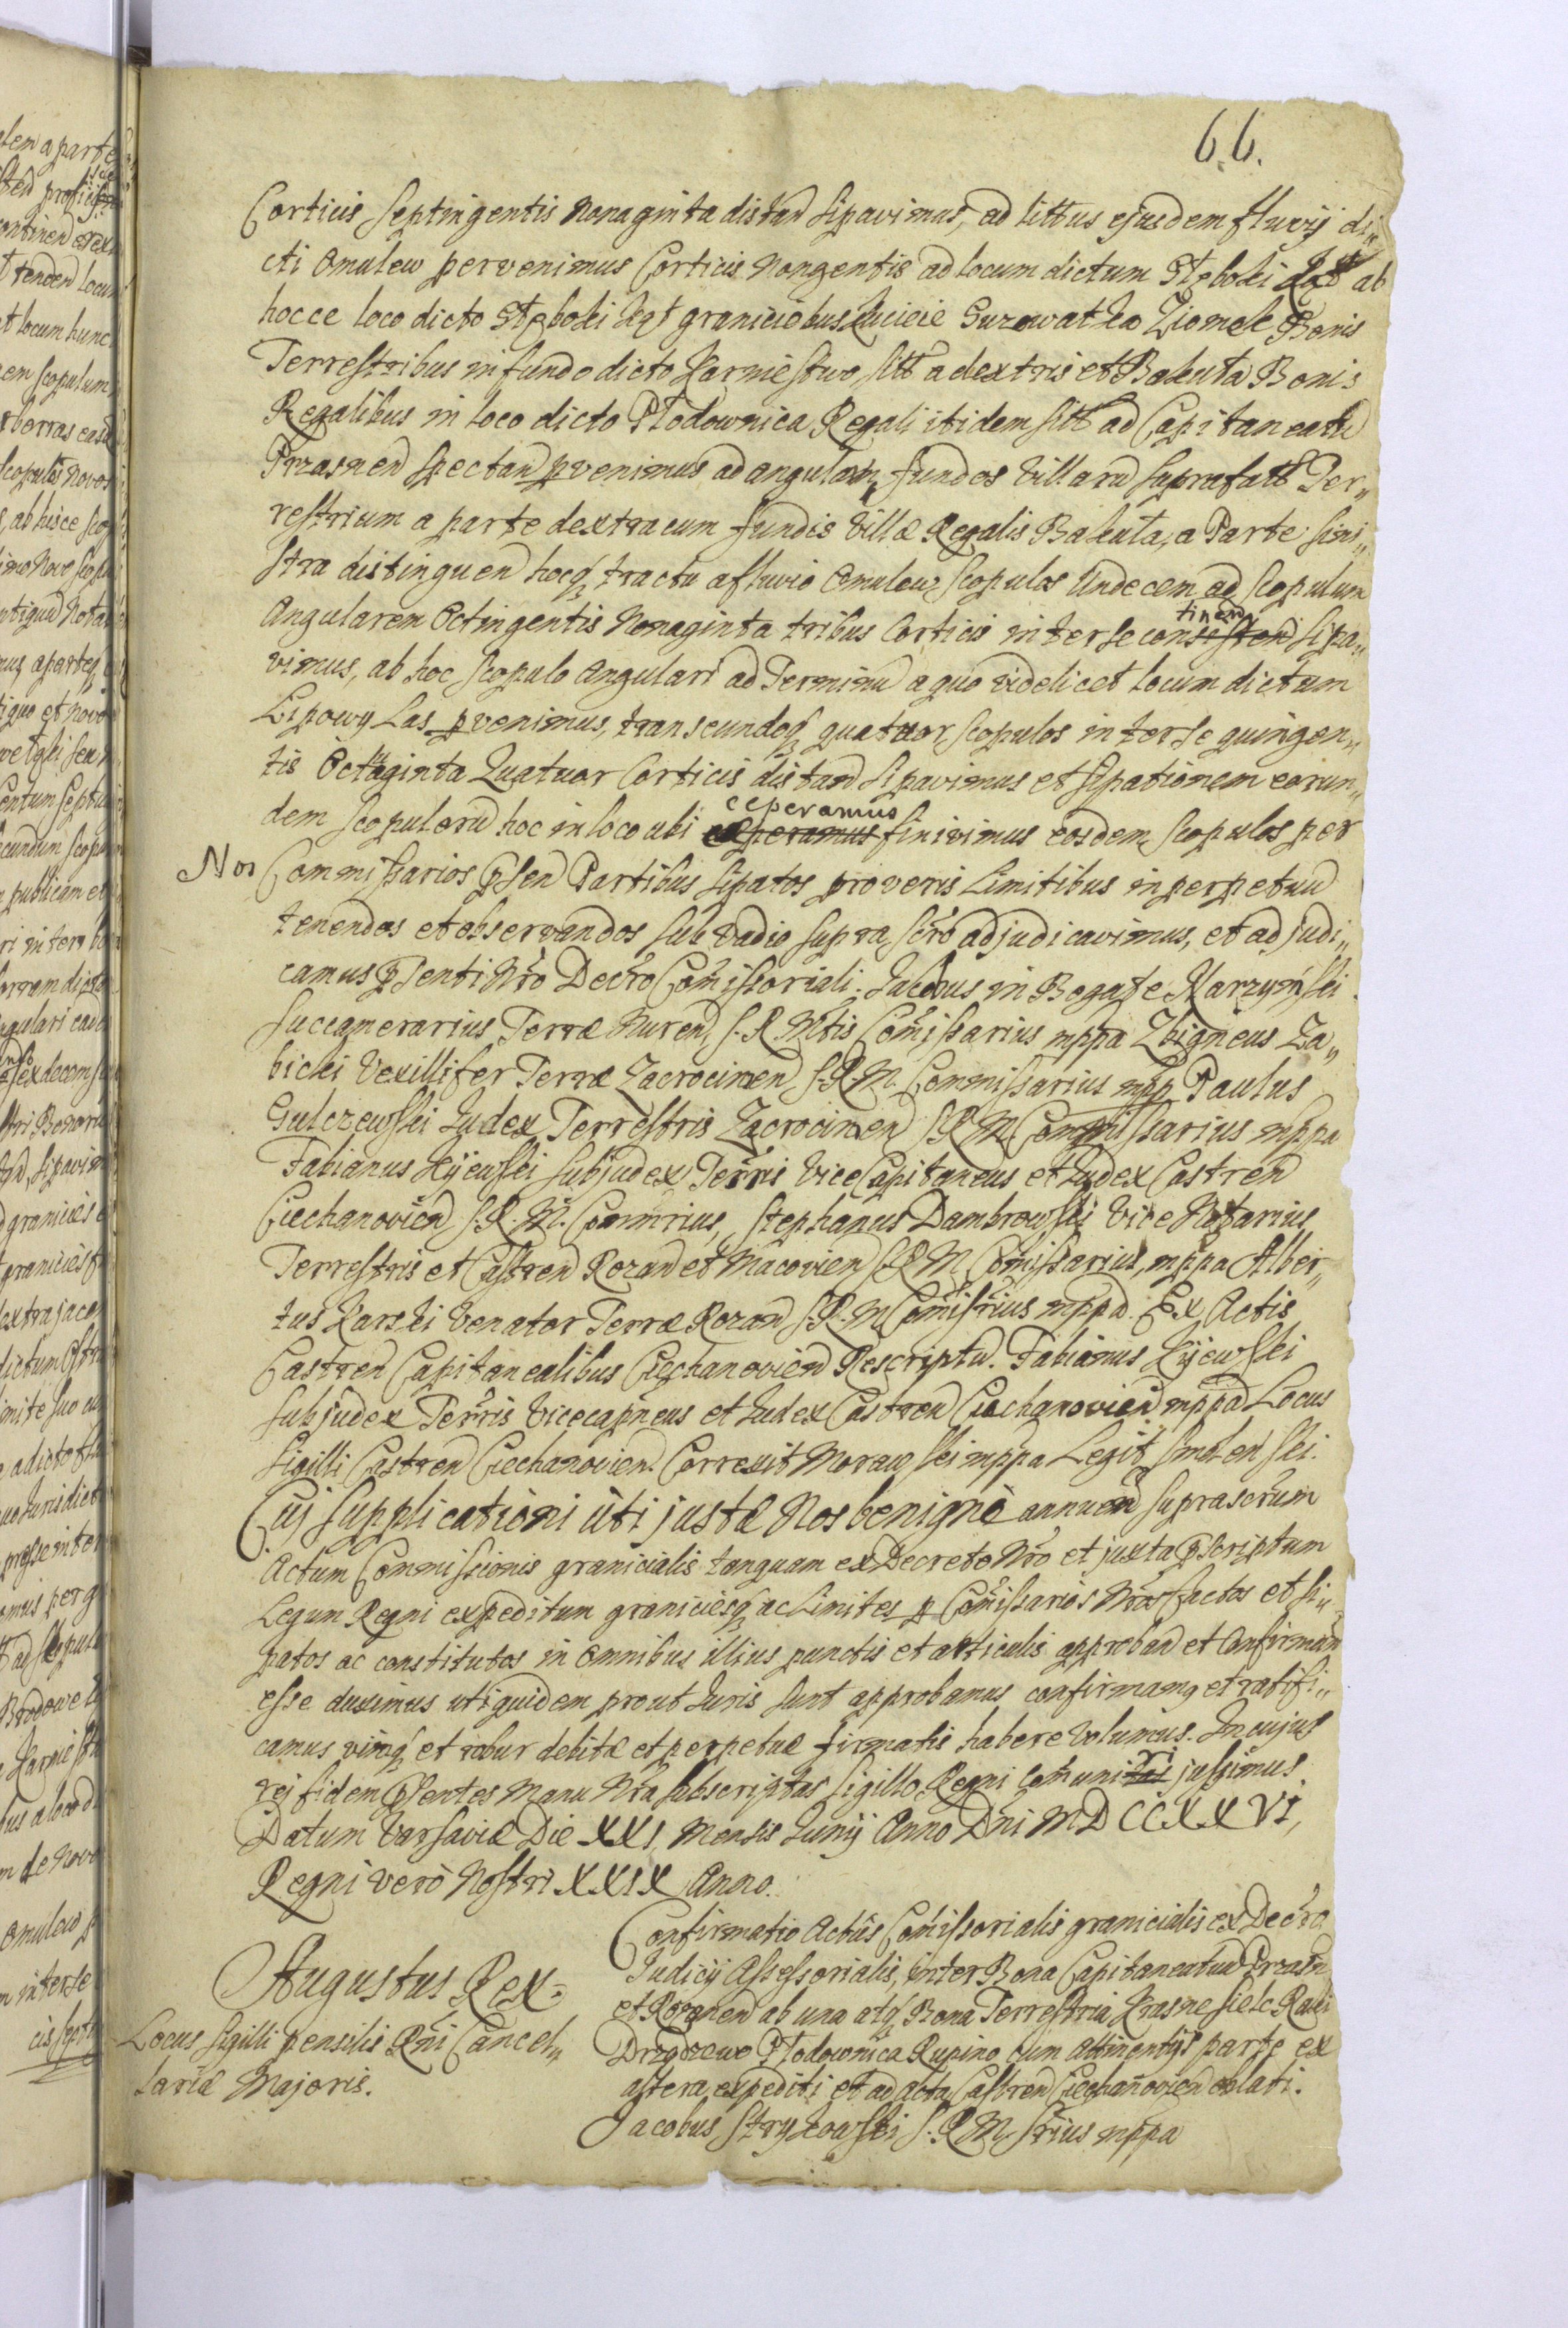 6.6.
Corticis Septingentis Nonaginta distan sipavimus, ad littus ejusdem fluvij di„
cti Omulew pervenimus Corticis Nongentis ad locum dictum Stęboki ab
hocce loco dicto Stęboki graniciebus Kucicie Surowatka Ziomek Bonis
Terrestribus in fundo dicto Karniestwo sitt a dextris et Bakuta Bonis
Regalibus in loco dicto Płodownica Regali itidem sitt ad Capitaneatu
Przasnen spectan pvenimus ad angularem fundos Villaru suprafatt Ter„
restrium a parte dextra cum fundis Villæ Regalis Bakuta, a Parte sini„
stra distinguen hocq tractu a fluvio Omulew Scopulos Undecem ad Scopulum
Angularem Octingentis Nonaginta tribus Corticis inter se continen sipa„
vimus, ab hoc Scopulo Angulari ad Terminu a quo videlicet locum dictum
Lipowy Las pvenimus, transeundoq quatuor Scopulos inter se quingen„
tis Octuaginta Quatuor Corticis distan sipavimus et sipationem earun„
dem Scopuloru hoc in loco ubi ceperamus finivimus eosdem Scopulos per
Nos Commissarios psen Partibus sipatos pro veris Limitibus in perpetuu
tenendos et observandos sub vadio supra scro adjudicavimus, et adjudi„
camus psenti Nro Decro Comissoriali. Jacobus in Bogate Narzymski
Succamerarius Terræ Nuren, S. R. Mtis Comissarius mppa Zbigneus Za„
bicki Vexillifer Terræ Zacrocimen S. R. M. Commissarius mpp Paulus
Gulczewski Judex Terrestris Zacrocimen S R M Commissarius mppa
Fabianus Kijewski Subjudex Terris Vice Capitaneus et Judex Castren
Ciechanovien S. R. M. Commrius, Stephanus Dambrowski Vice Notarius
Terrestris et Castren Rozan et Macovien S R M Comissarius, mppa Alber„
tus Karski Venator Terræ Rozan S. R. M Comisrius mppa. Ex Actis
Castren Capitanealibus Ciechanovien Rescriptu. Fabianus Kijewski
Subjudex Terris Vicecapneus et Judex Castren Ciechanovien mppa Locus
Sigilli Castren Ciechanovien. Correxit Morawski mppa Legit Smolenski.
Cuj supplicationi uti justæ Nos benignè annuen suprascrum
Actum Commissionis granicialis tanquam ex Decreto Nro et juxta pscriptum
Legum Regni expeditum graniciesq ac Limites p Comissarios Nros factos et si„
patos ac constitutos in omnibus illius punctis et articulis approban et Confirman
esse duximus uti quidem prout Juris sunt approbamus confirmamq et ratifi„
camus vimq et robur debitæ et perpetuæ firmatis habere volumus. In cujus
rej fidem psentes Manu Nra subscriptas Sigillo Regni Comuniri jussimus.
Datum Varsaviæ Die XXI. Mensis Junij Anno Dni MDCCXXVI,
Regni verò Nostri XXIX Anno.
Augustus Rex
Locus Sigilli pensilis Rni Cancel„
lariæ Majoris.
Confirmatio Actus Comissorialis granicialis ex Decro
Judicij Assessorialis, inter Bona Capitaneatuu Przasn
et Rozanen ab una atq Bona Terrestria Krasne Sielc Raki
Drzdzewo Płodownica Rupino cum attinentijs parte ex
altera expediti et ad Acta Castren Ciechanovien oblati.
Jacobus Stryzowski S. R. M. Srius mppa